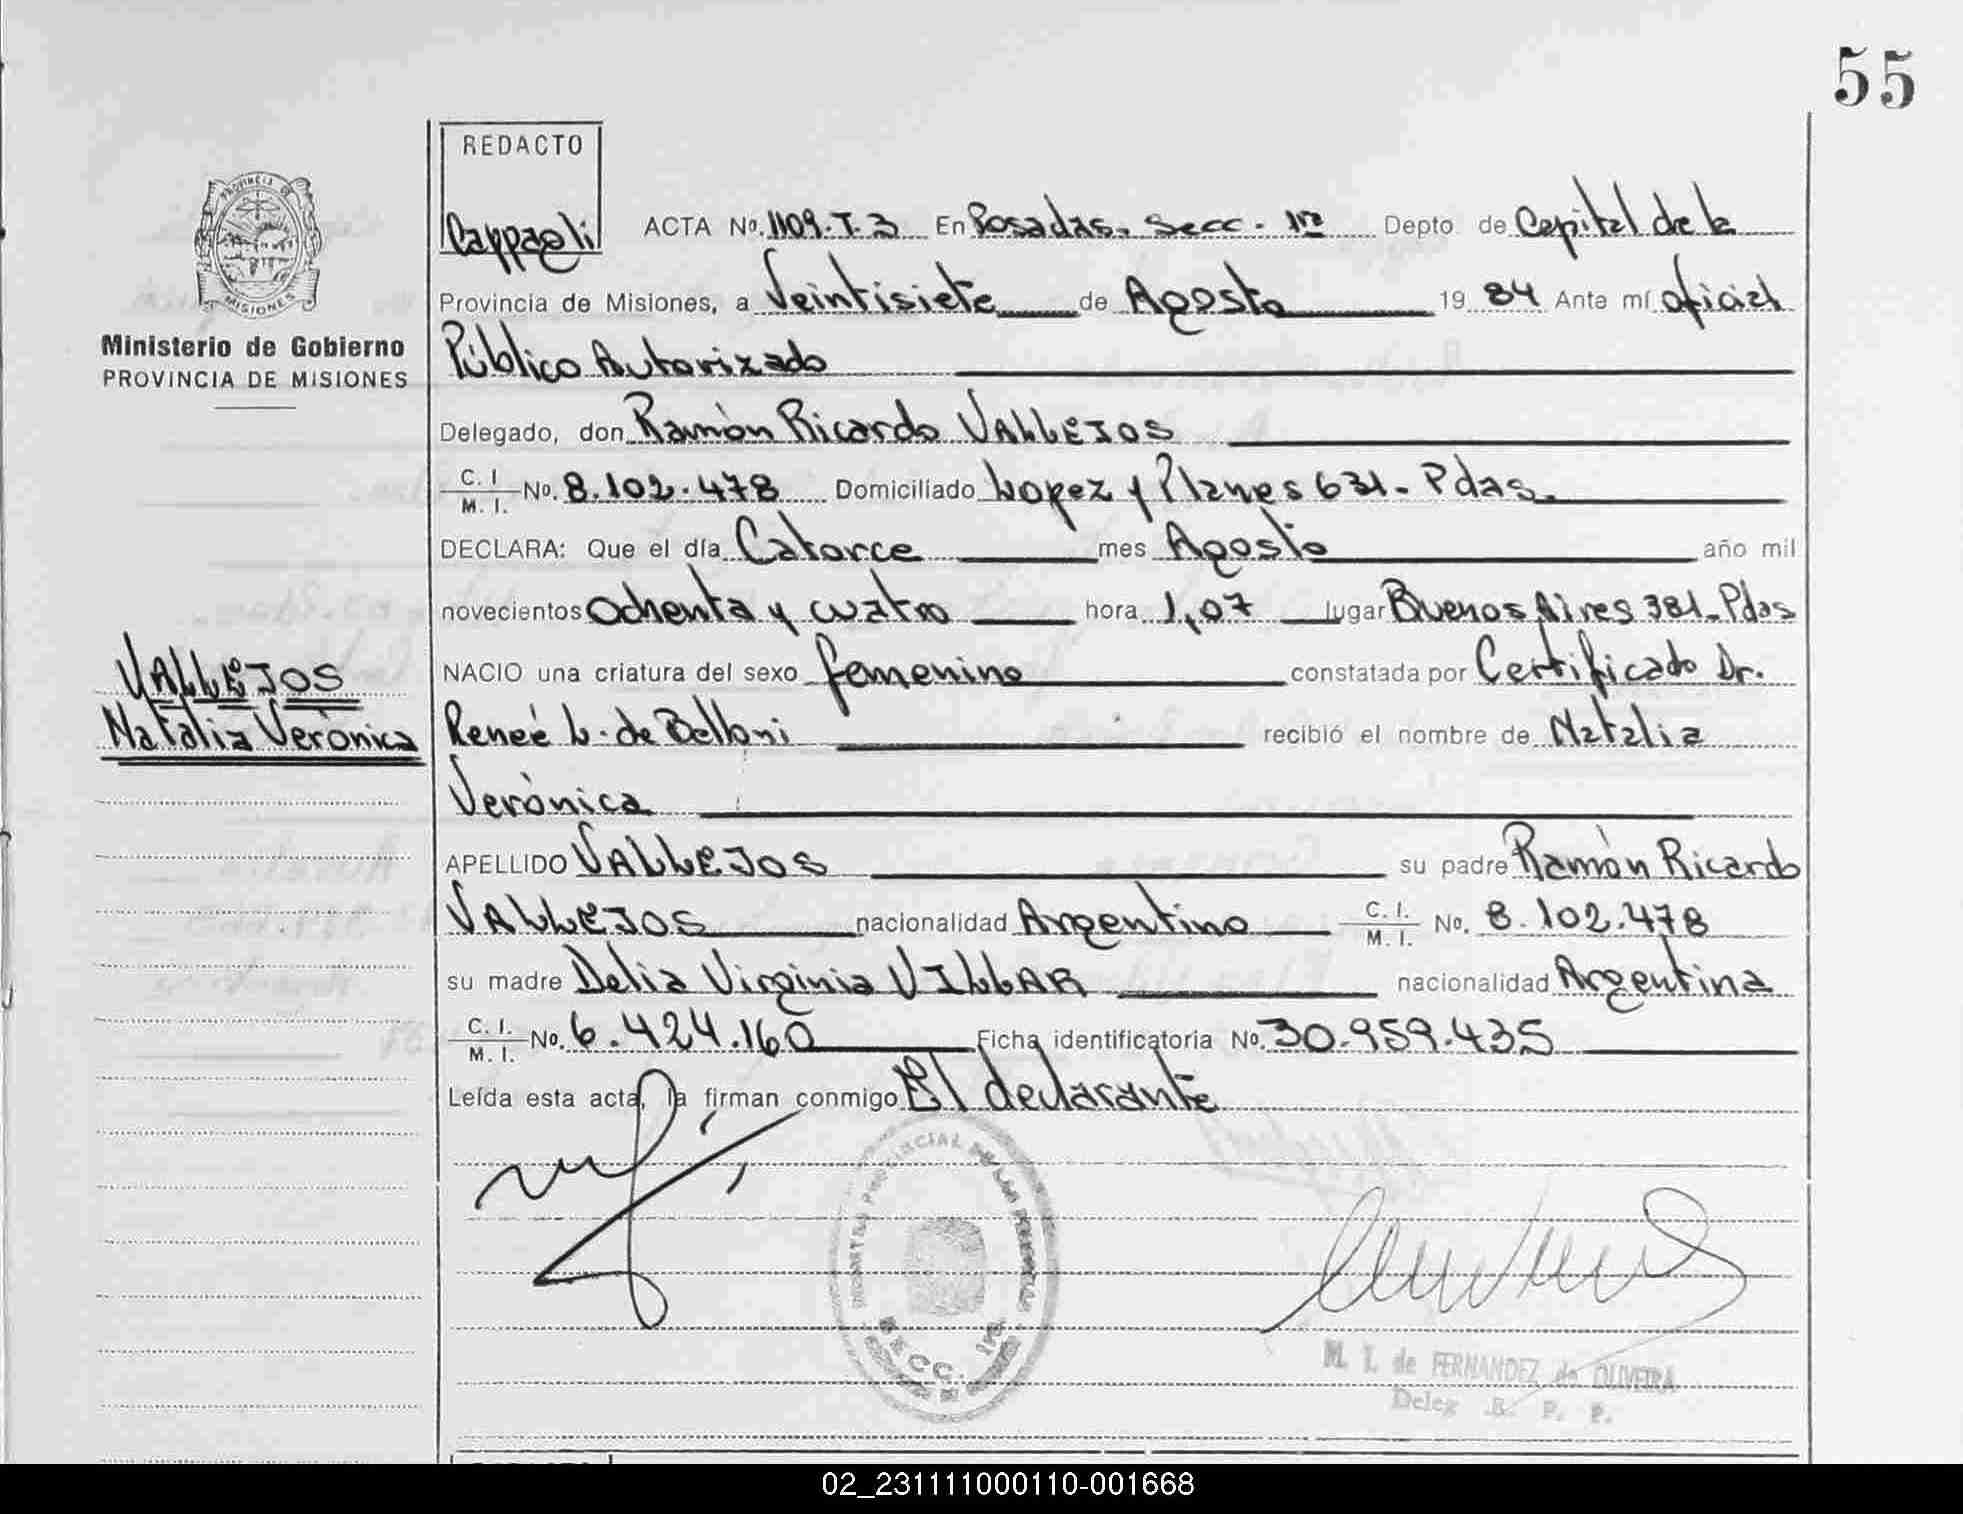 55
REDACTO
Cappaeli
ACTA Nº. 1109. T. 3 En Posadas. Secc. 1ra Depto de Capital de la
Provincia de Misiones, a Veintisiete de Agosto 19 84 Ante mí oficial
Público Autorizado
Delegado, don Ramón Ricardo VALLEJOS
C. I. M. I. No. 8.102.478 Domiciliado Lopez y Planes 631 - Pdas.
DECLARA: Que el día Catorce mes Agosto año mil
novecientos Ochenta y cuatro hora 1,07 lugar Buenos Aires 381 - Pdas
NACIO una criatura del sexo femenino constatada por Certificado Dr.
Reneé L. de Belloni recibió el nombre de Natalia
Verónica
APELLIDO VALLEJOS su padre Ramón Ricardo
VALLEJOS nacionalidad Argentino C. I. M. I. No. 8.102.478
su madre Delia Virginia VILLAR nacionalidad Argentina
C. I. M. I. No. 6.424.160 Ficha identificatoria No. 30.959.435
Leída esta acta, la firman conmigo El declarante
PROVINCIA DE
MISIONES
Ministerio de Gobierno
PROVINCIA DE MISIONES
VALLEJOS
Natalia Verónica
PROVINCIAL DE LAS PERSONAS
SECC. 1ra
M. I. de FERNANDEZ de OLIVEIRA
Deleg R. P. P.
02_231111000110-001668